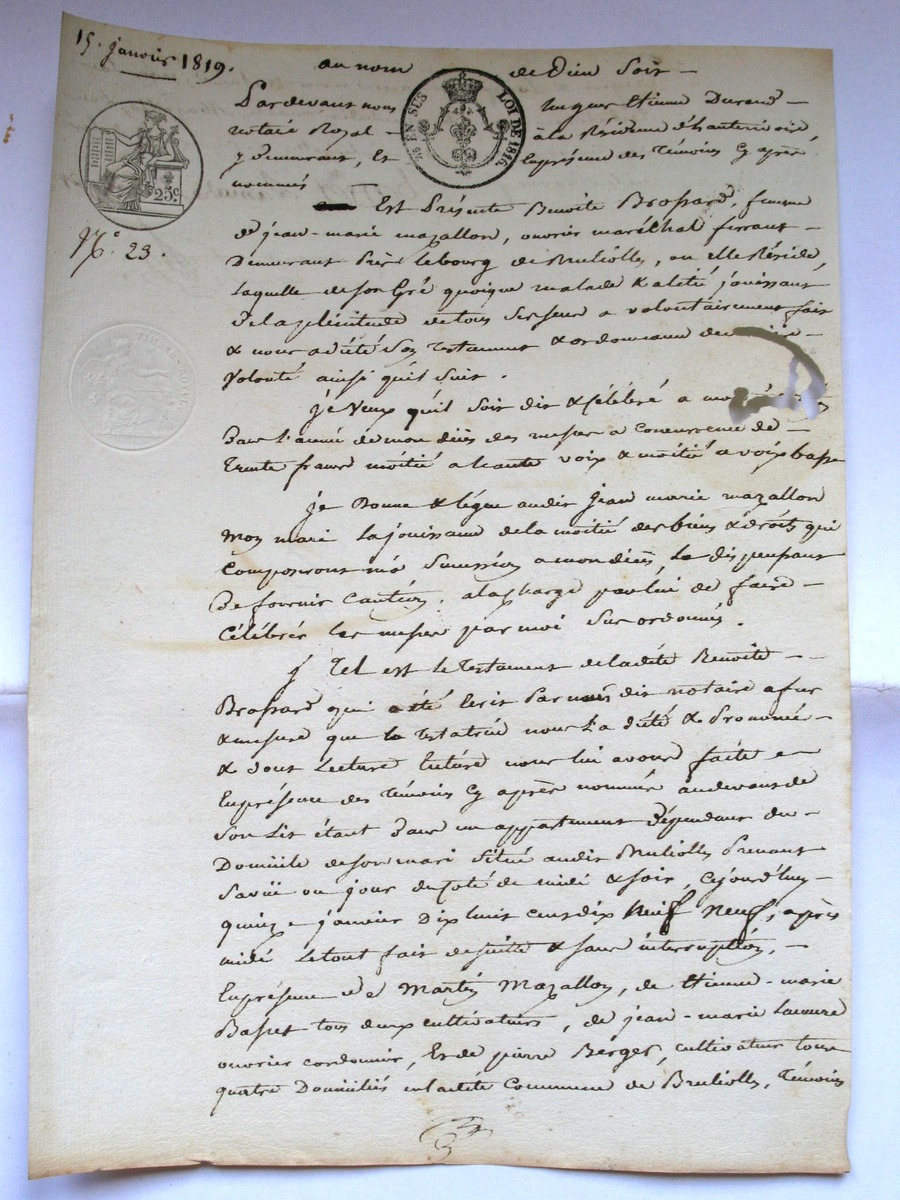 15. janvier 1819.
au nom de Dieu Soit —
Pardevant nous Jacques Etienne Durand —
notaire Royal — à la Résidence d'hauterivoire,
y demeurant, Et Enprésence des Témoins Cy après
nommés
25c.
45 EN SUS LOI DE 1816.
N.° 23.
TIMBRE ROYAL
Est Présente Benoite Brossard, femme
de jean-marie mazallon, ouvrier maréchal ferrant —
Demeurant Près lebourg de Bruliolles, ou elle Réside,
laquelle de son Gré quoique malade & alitée jouissant
de la plénitude de tous ses sens a volontairement fait
& nous a dicté Son Testament & ordonnance de —
Volonté ainsi qu'il Suit.
je Veux qu'il Soit dit & Célébré a
dans l'année de mon décès des messes a Concurrence de —
Trente francs moitié a haute voix & moitié a voix basse
je Donne & légue audit jean marie mazallon
mon mari la jouissance de la moitié des biens & droits qui
Composeront ma Succession a mon décès, Le dispensant
De fournir Caution, a la charge par lui de faire —
Célébrer les messes par moi Sus ordonnées.
Tel est le Testament de ladite Benoite —
Brossard qui a été Ecrit Par nous dit notaire a fur
& mesure que la testatrice nous l'a dicté & Prononcé —
& dont Lecture Entière nous lui avons faite —
Enprésence des Témoins Cy après nommés audevant de
Son Lit étant dans un appartement Dépendant du —
Domicile de son mari Situé audit Bruliolles Prenant
Sa vüe ou jour du coté de midi & soir, Cejourd'huy
quinze janvier Dix huit cent dix Neuf Neuf, après
midi Le tout fait de suite & sans interruption, —
Enprésence de Martin Mazallon, de Etienne-marie
Basset tous deux cultivateurs, de jean-marie
ouvrier cordonnier, Et de pierre Berger, cultivateur tous
quatre Domiciliés en ladite Commune de Bruliolles, Témoins